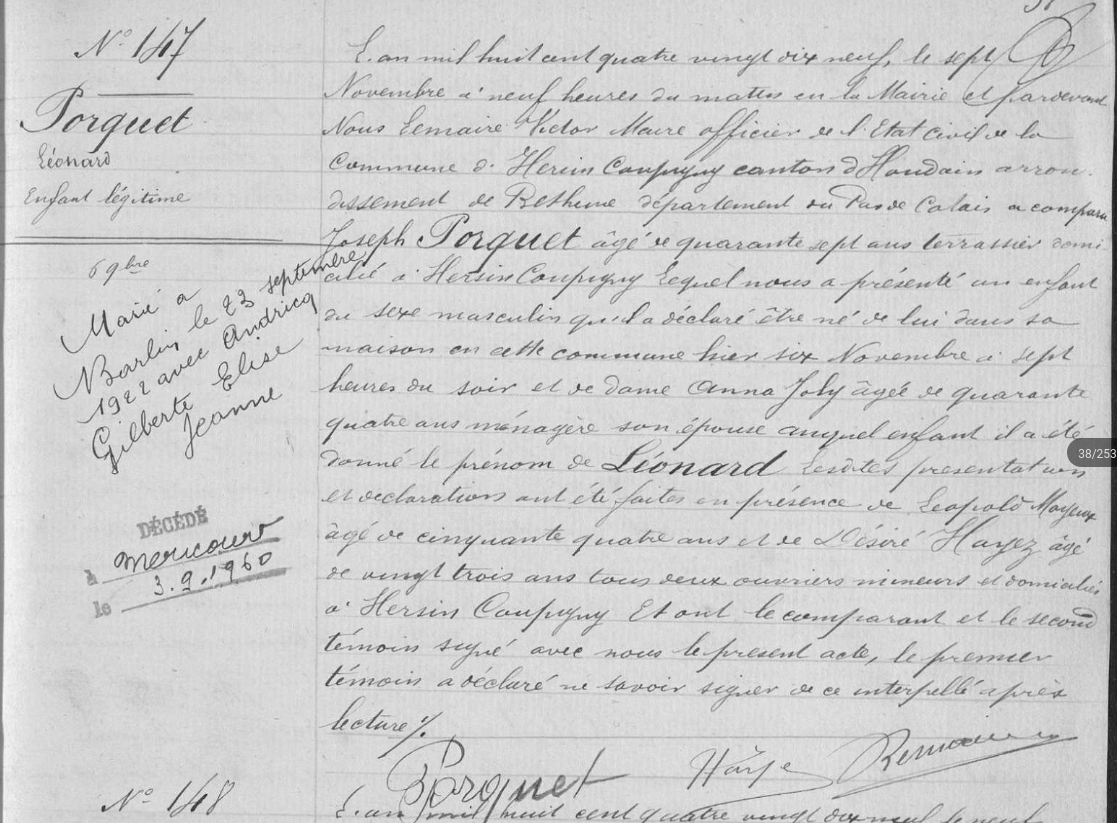 N° 147
Porquet
Léonard
Enfant légitime
6 9bre
Marié a
Barlin le 23 septembre
1922 avec Andricq
Gilberte Elise
Jeanne
DÉCÉDÉ
à Mericourt
le 3.9.1960
L'an mil huit cent quatre vingt dix neuf, le sept
Novembre à neuf heures du matin en la Mairie et pardevant
Nous Lemaire Victor Maire officier de l'Etat civil de la
Commune d'Hersin Coupigny canton d'Houdain arron-
dissement de Bethune département du Pas de Calais a comparu
Joseph Porquet âgé de quarante sept ans terrassier domi
cilié à Hersin Coupigny lequel nous a présenté un enfant
du sexe masculin qu'il a déclaré être né de lui dans sa
maison en cette commune hier six Novembre à sept
heures du soir et de dame Anna Joly âgée de quarante
quatre ans ménagère son épouse auquel enfant il a été
donné le prénom de Léonard Lesdites présentations
et déclarations ont été faites en présence de Leopold Mayeux
âgé de cinquante quatre ans et de Désiré Hayez âgé
de vingt trois ans tous deux ouvriers mineurs et domiciliés
à Hersin Coupigny Et ont le comparant et le second
témoin signé avec nous le présent acte, le premier
témoin a déclaré ne savoir signer de ce interpellé après
lecture ./.
Porquet
N° 148
L'an mil huit cent quatre vingt dix neuf le neuf
38/253